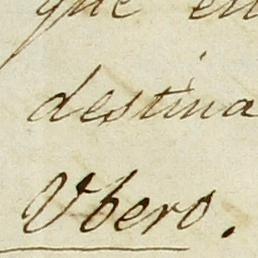 que en
destina
Vbero.